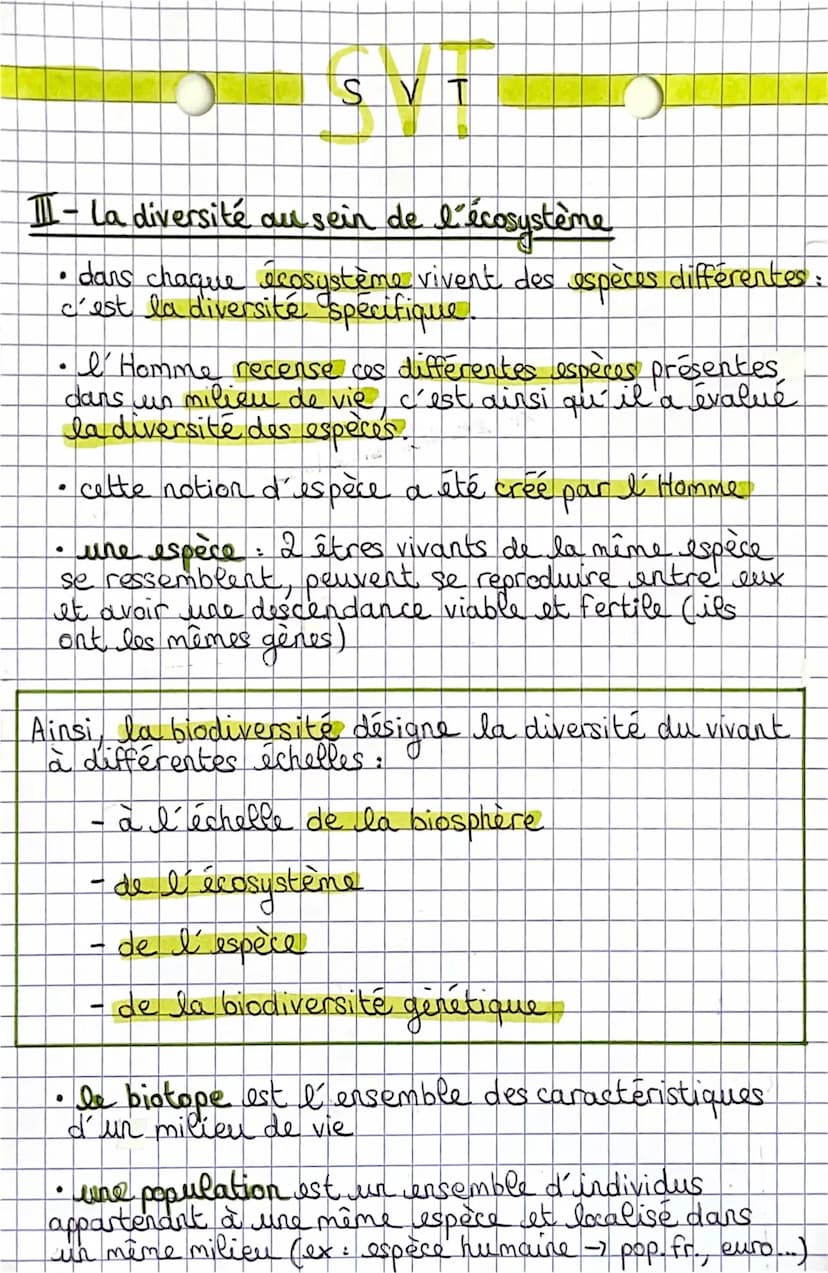 SVT
S V T
III - La diversité au sein de l'écosystème
• dans chaque écosystème vivent des espèces différentes :
c'est la diversité spécifique.
• l'Homme recense ces différentes espèces présentes
dans un milieu de vie, c'est ainsi qu'il a évalué
la diversité des espèces.
• cette notion d'espèce a été créé par l'Homme
• une espèce : 2 êtres vivants de la même espèce
se ressemblent, peuvent se reproduire entre eux
et avoir une descendance viable et fertile (ils
ont les mêmes gènes)
Ainsi, la biodiversité désigne la diversité du vivant
à différentes échelles :
- à l'échelle de la biosphère
- de l'écosystème
- de l'espèce
- de la biodiversité génétique
• le biotope est l'ensemble des caractéristiques
d'un milieu de vie
• une population est un ensemble d'individus
appartenant à une même espèce et localisé dans
un même milieu (ex : espèce humaine → pop. fr., euro...)